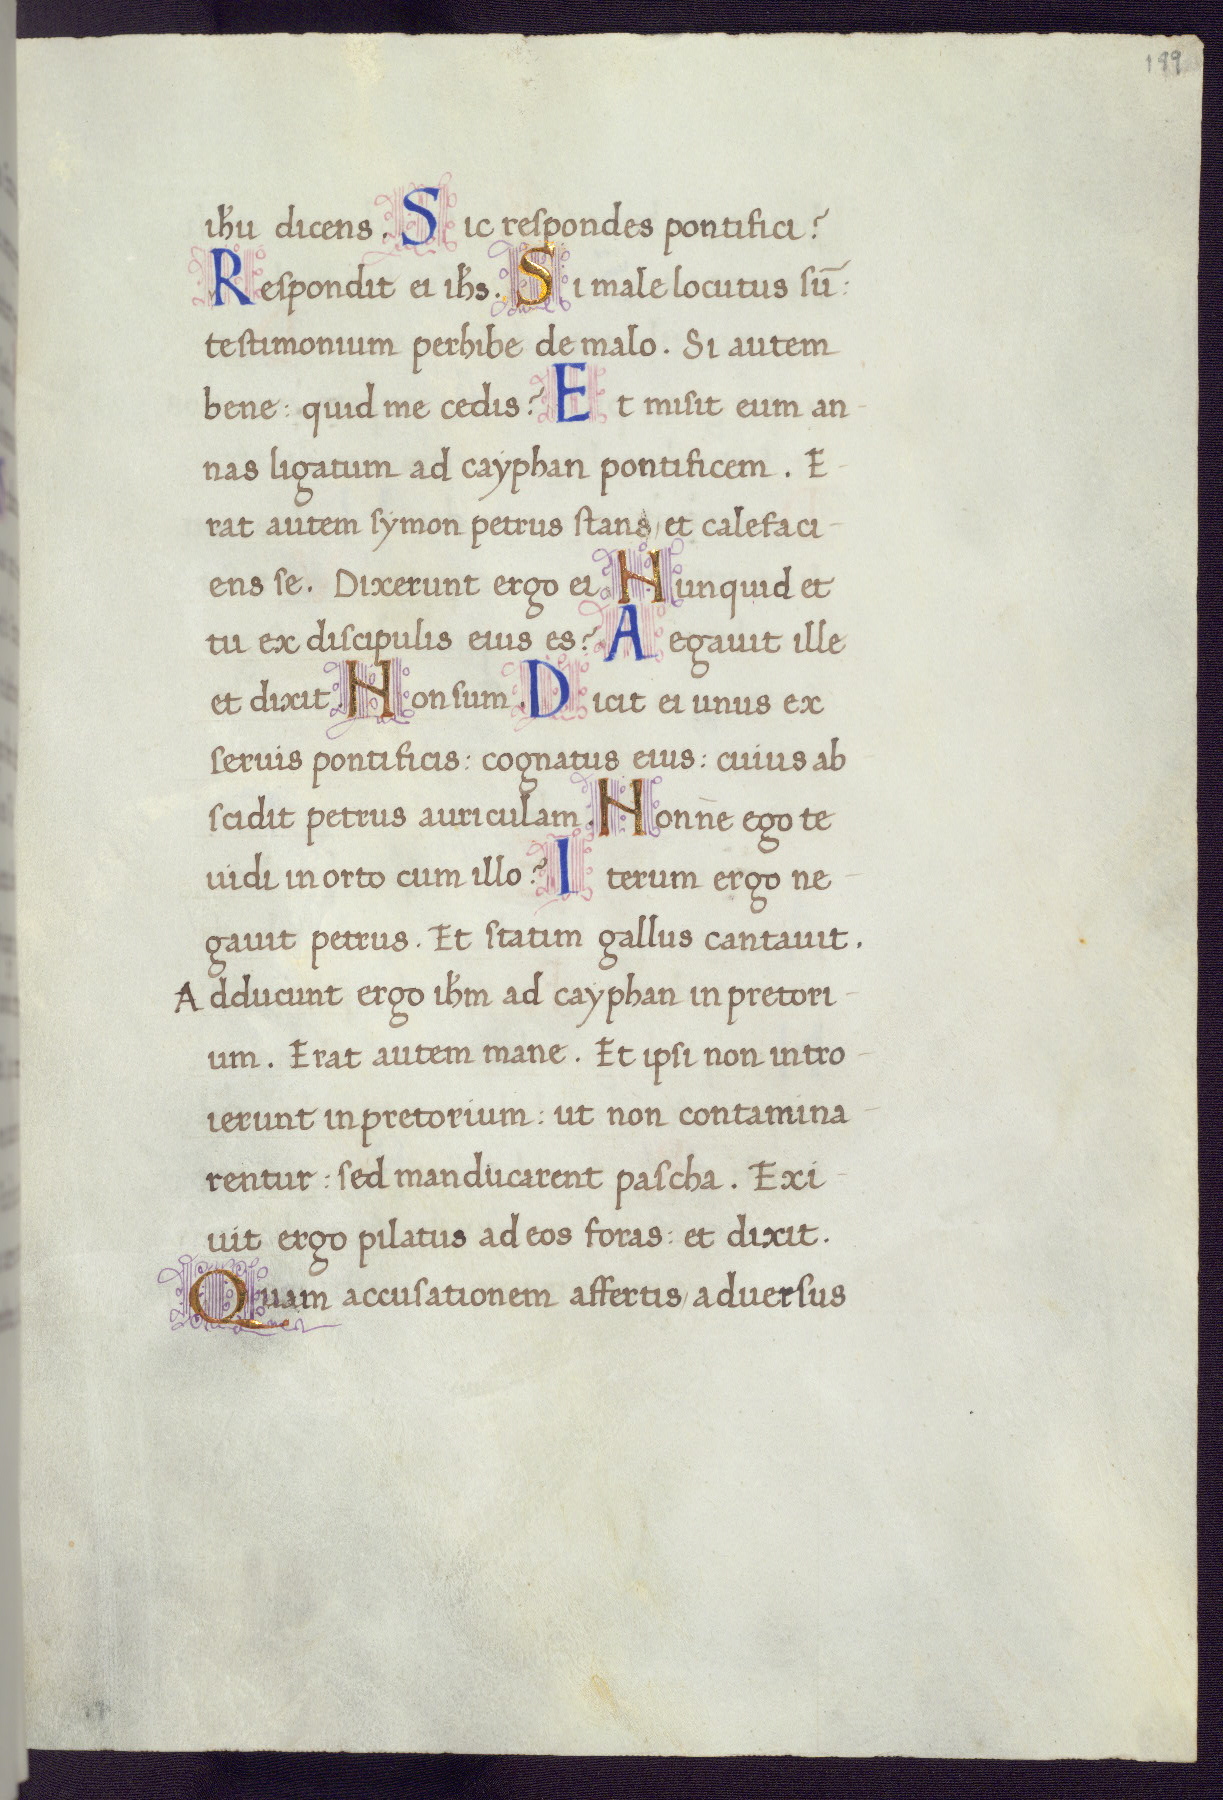 199
ihu dicens. Sic respondes pontifici?
Respondit ei ihs. Si male locutus sū:
testimonium perhibe de malo. Si autem
bene: quid me cedis? Et misit eum an-
nas ligatum ad cayphan pontificem. E-
rat autem symon petrus stans/ et calefaci-
ens se. Dixerunt ergo ei. Nunquid et
tu ex discipulis eius es? Aegauit ille
et dixit. Non sum. Dicit ei unus ex
seruis pontificis: cognatus eius: cuius ab
scidit petrus auriculam. Nonne ego te
uidi in orto cum illo? Iterum ergo ne-
gauit petrus. Et statim gallus cantauit.
Adducunt ergo ihm ad cayphan in pretori-
um. Erat autem mane. Et ipsi non intro-
ierunt in pretorium: ut non contamina-
rentur: sed manducarent pascha. Exi-
uit ergo pilatus ad eos foras: et dixit.
Quam accusationem affertis/ aduersus